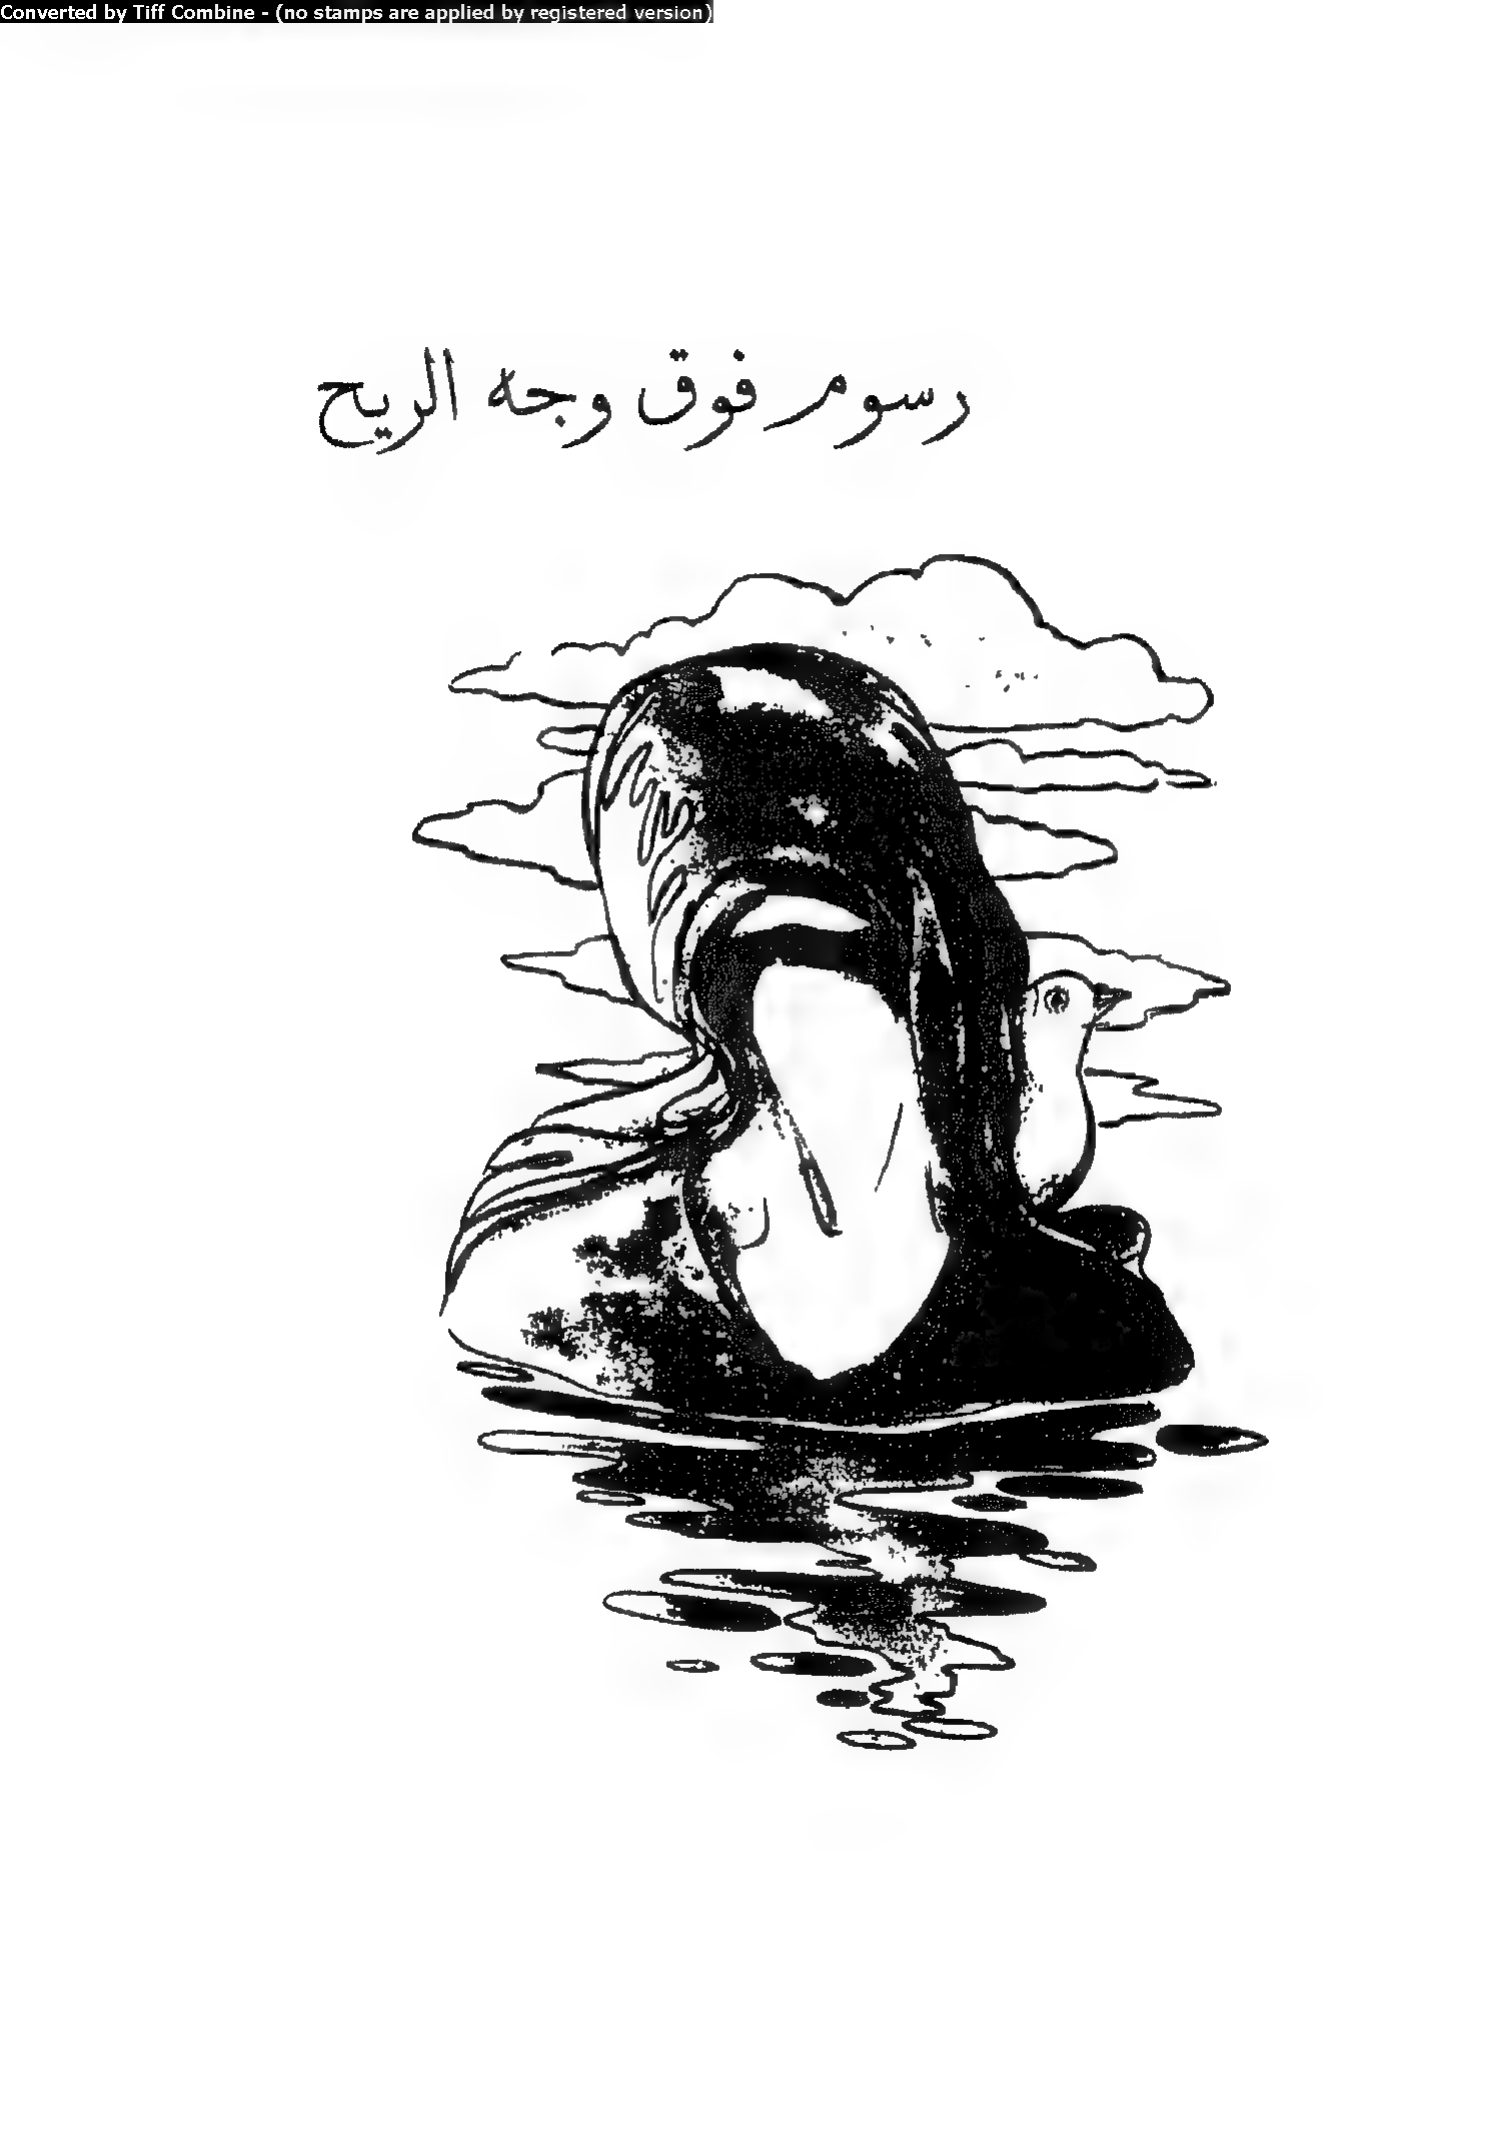 Converted by Tiff Combine - (no stamps are applied by registered version)
رسوم فوق وجه الريح